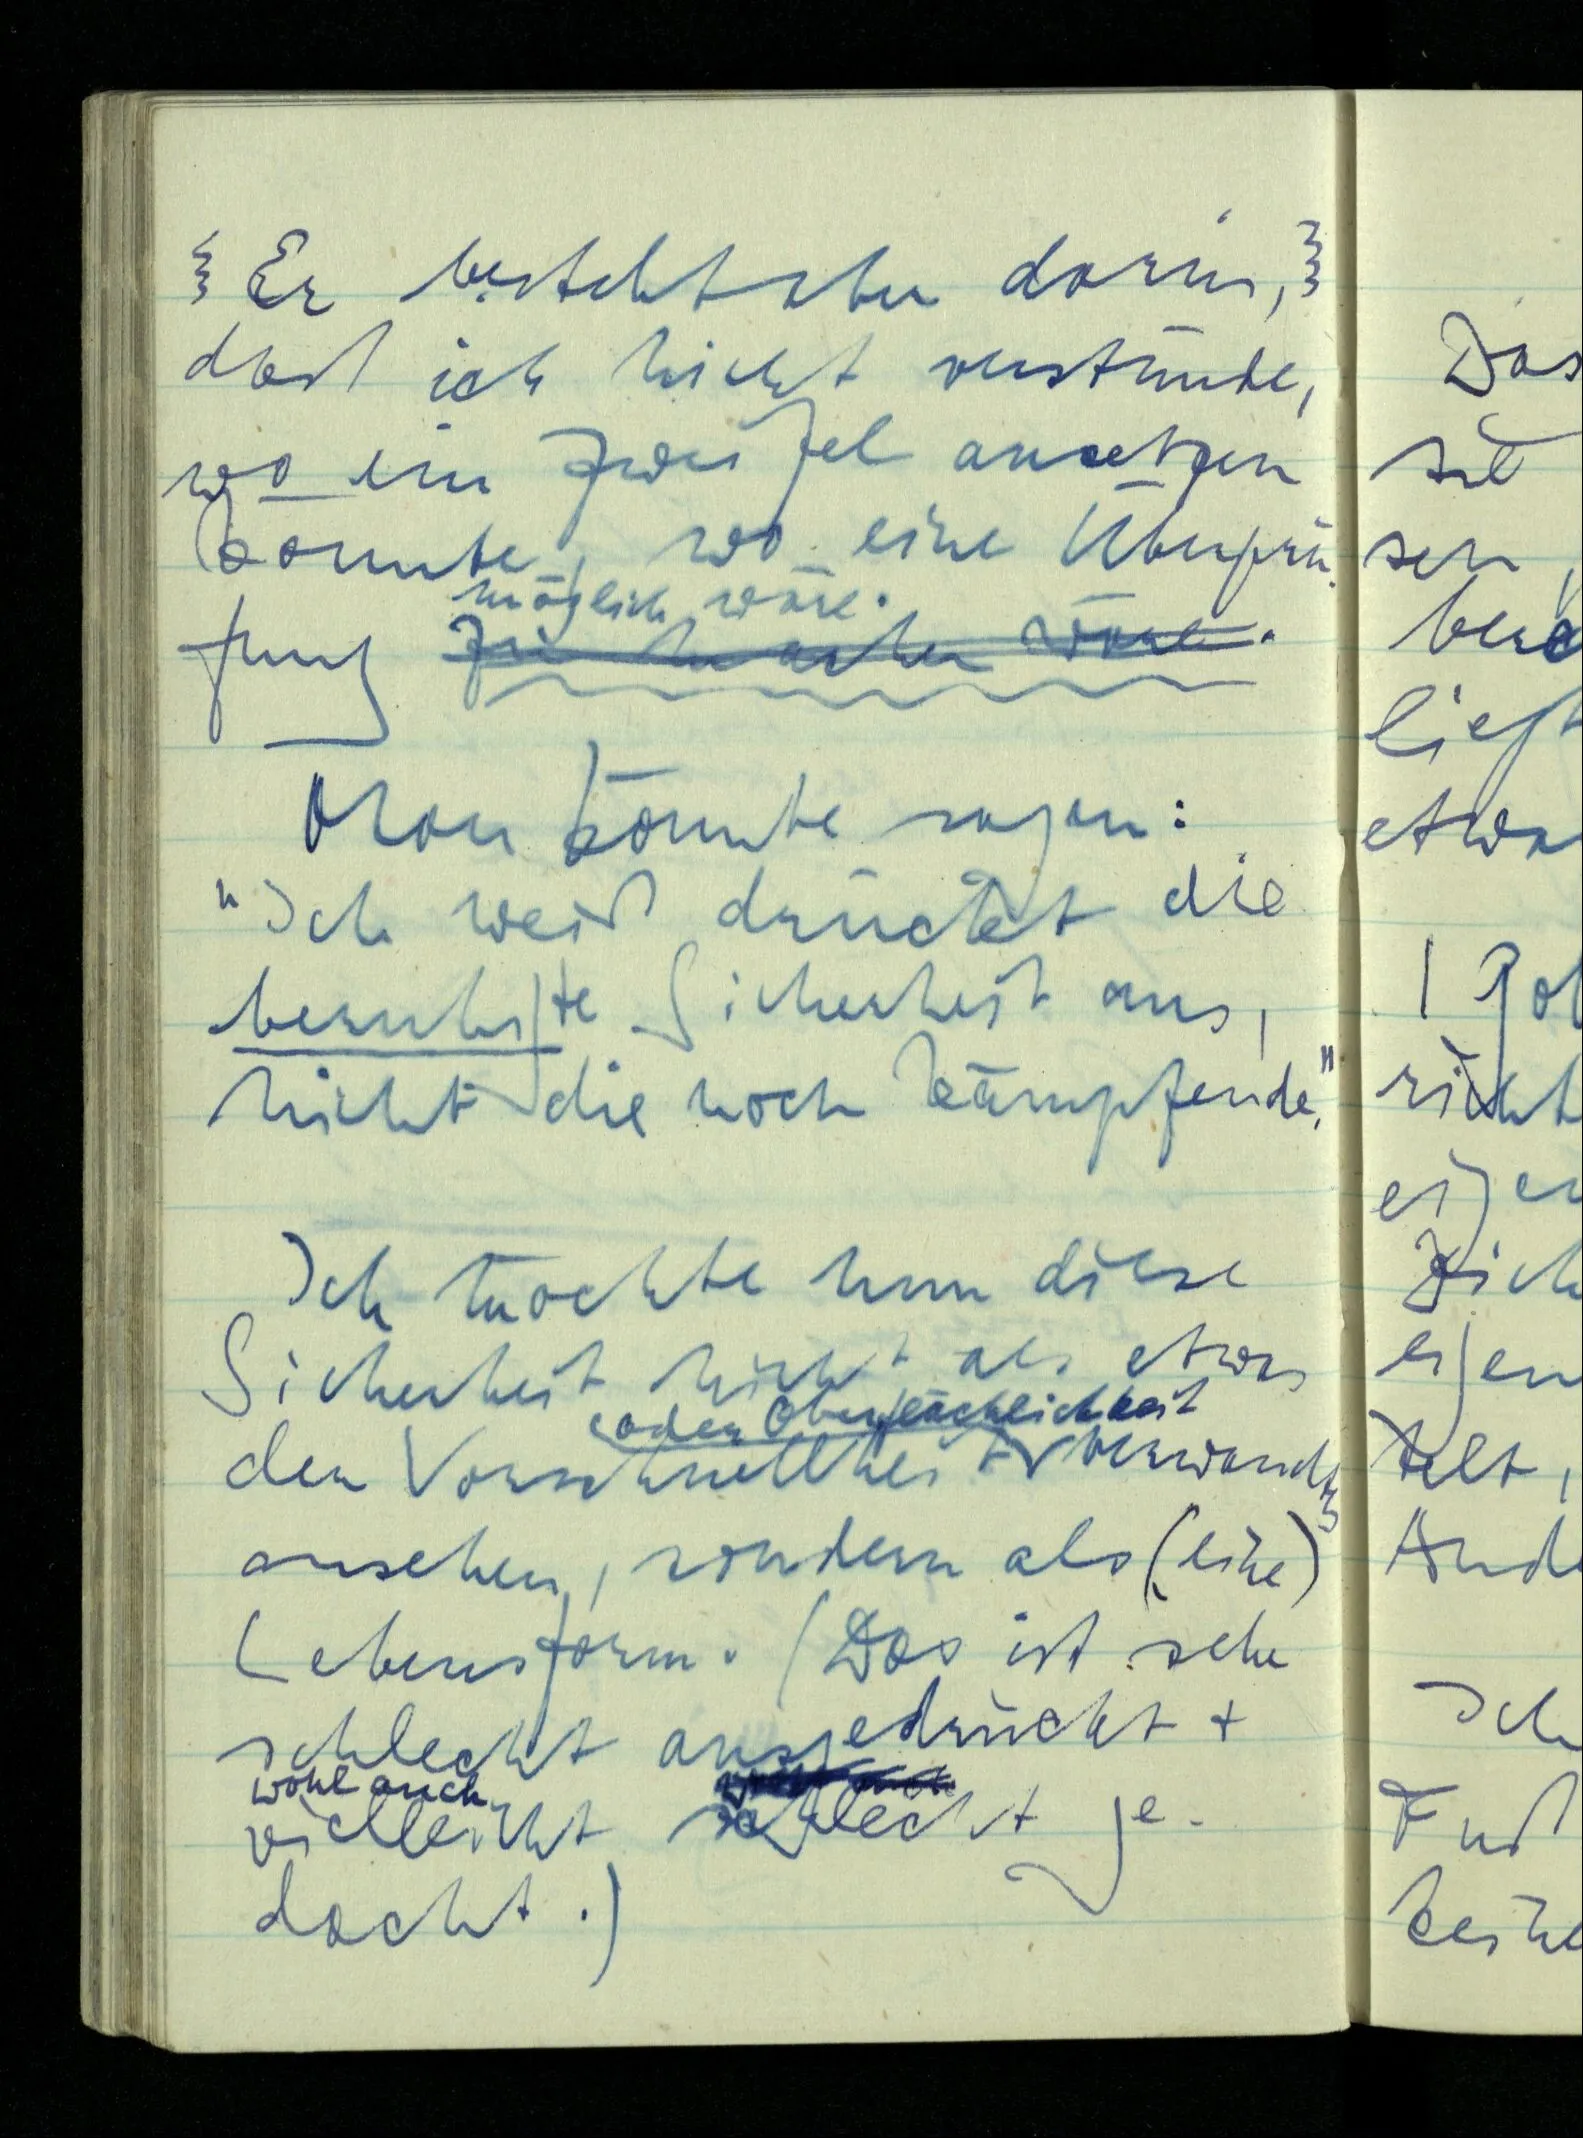 Er besteht aber darin,
daß ich nicht verstünde,
wo ein Zweifel ansetzen
könnte, wo eine Überprü-
möglich wäre.
fung zu machen wäre.
Man könnte sagen:
"Ich weiß drückt die
beruhigte Sicherheit aus,
nicht die noch kämpfende."
Ich möchte nun diese
Sicherheit nicht als etwas
oder Oberflächlichkeit
der Vorschnellheit verwandtes
ansehen, sondern als (eine)
Lebensform. (Das ist sehr
schlecht ausgedrückt +
wohl auch
vielleicht schlecht ge-
dacht.)
Das
sen,
ließt
etwa
richt
eigen
eigen
telt,
Ich
Fuß
keine